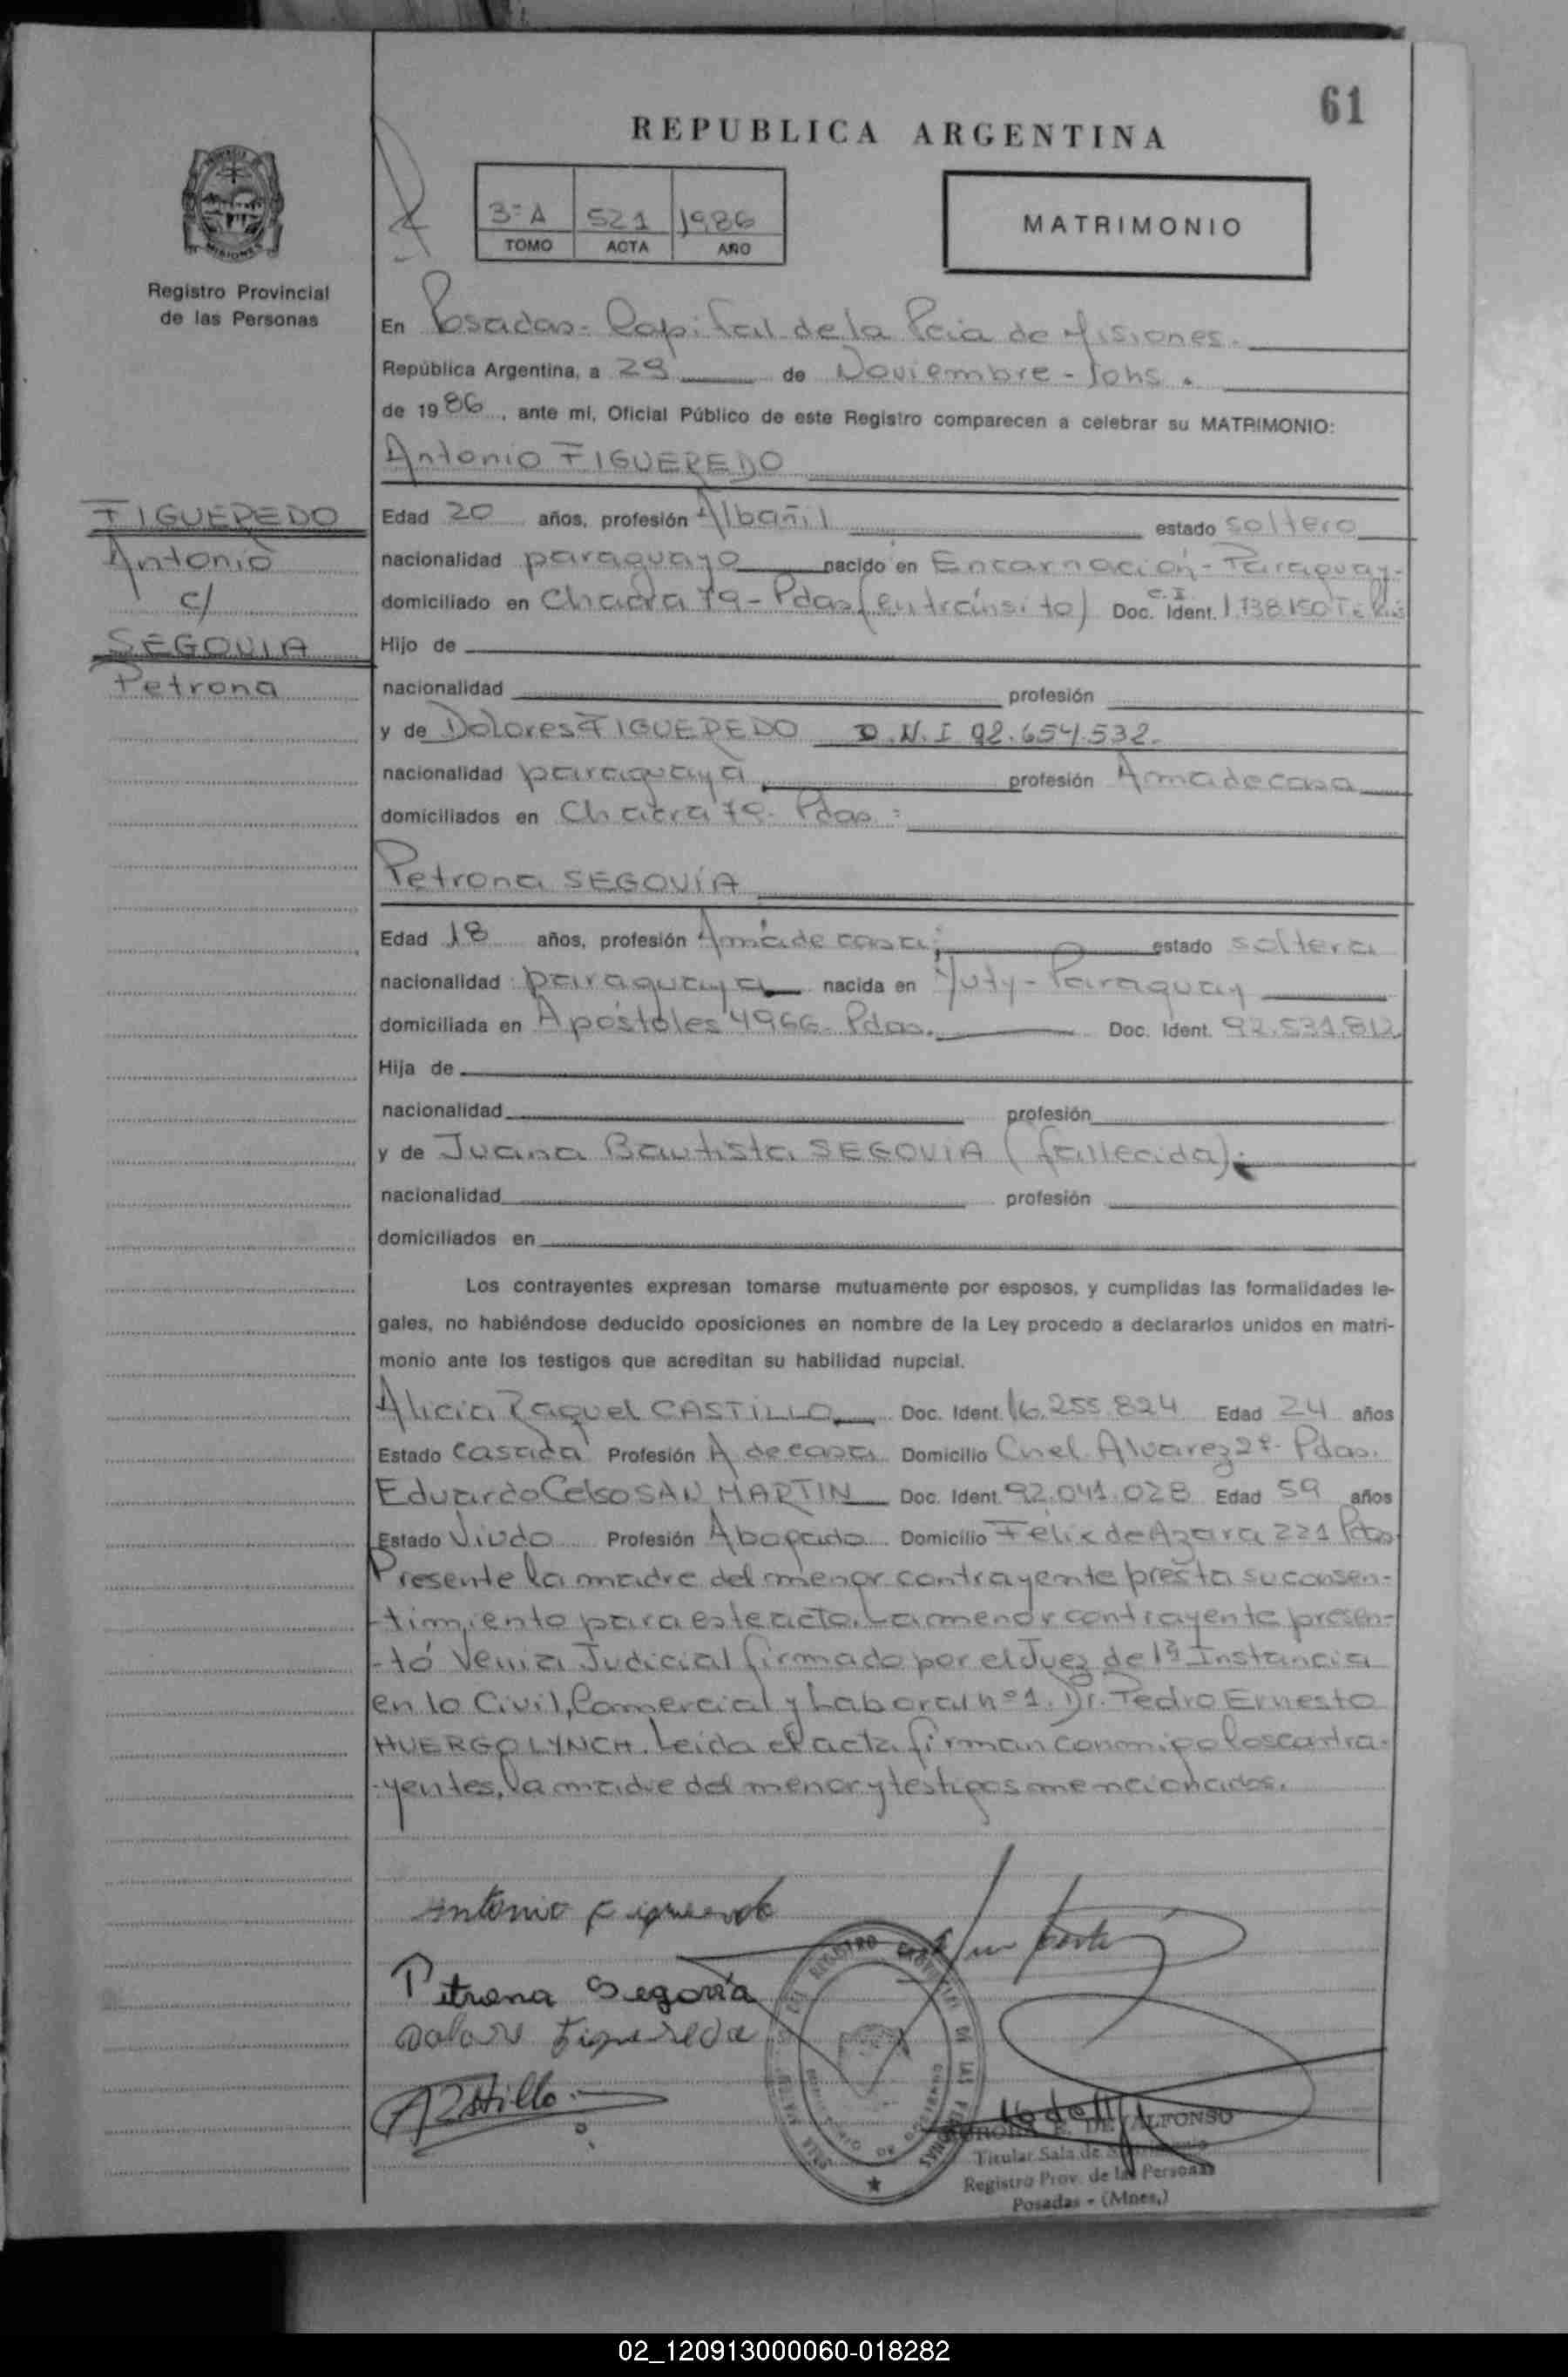 61
REPUBLICA ARGENTINA
3ª A 521 1986
TOMO ACTA AÑO
MATRIMONIO
PROVINCIA DE
MISIONES
Registro Provincial
de las Personas
En Posadas - Capital de la Pcia de Misiones.
República Argentina, a 29 de Noviembre - 10hs.
de 1986, ante mi, Oficial Público de este Registro comparecen a celebrar su MATRIMONIO:
Antonio FIGUEREDO
FIGUEREDO
Antonio
c/
SEGOVIA
Petrona
Edad 20 años, profesión Albañil estado soltero
nacionalidad paraguayo nacido en Encarnación - Paraguay-
domiciliado en Chacra 79 - Pdas (en tránsito) Doc. Ident. C.I. 1.738.150
Hijo de
nacionalidad profesión
y de Dolores FIGUEREDO D.N.I 92.654.532.
nacionalidad paraguaya profesión Ama de casa
domiciliados en Chacra 79 - Pdas.
Petrona SEGOVIA
Edad 18 años, profesión Ama de casa; estado soltera
nacionalidad paraguaya nacida en Yuty - Paraguay
domiciliada en Apóstoles 4966 - Pdas. Doc. Ident. 92.531.812
Hija de
nacionalidad profesión
y de Juana Bautista SEGOVIA (fallecida).
nacionalidad profesión
domiciliados en
Los contrayentes expresan tomarse mutuamente por esposos, y cumplidas las formalidades le-
gales, no habiéndose deducido oposiciones en nombre de la Ley procedo a declararlos unidos en matri-
monio ante los testigos que acreditan su habilidad nupcial.
Alicia Raquel CASTILLO Doc. Ident. 16.255.824 Edad 24 años
Estado Casada Profesión A de casa Domicilio Cnel. Alvarez Pdas.
Eduardo Celso SAN MARTIN Doc. Ident. 92.041.028 Edad 59 años
Estado Viudo Profesión Abogado Domicilio Félix de Azara 221 Pdas
Presente la madre del menor contrayente presta su consen-
-timiento para este acto. La menor contrayente presen-
-tó Venia Judicial firmado por el Juez de 1ª Instancia
en lo Civil, Comercial y Laboral nº 1. Dr. Pedro Ernesto
HUERGO LYNCH. Leída el acta firman conmigo los contra-
-yentes, la madre del menor y testigos mencionados.
Antonio Figueredo
Petrona Segovia
Dolores Figueredo
ACastillo
REGISTRO PROVINCIAL DE LAS PERSONAS
DE ALFONSO
Titular Sala de
Registro Prov. de las Personas
Posadas - (Mnes.)
02_120913000060-018282